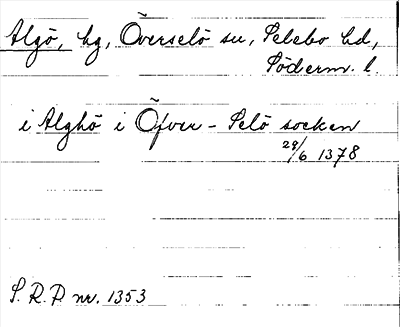 Algö, hg, Överselö sn, Selebo hd,
Söderm. l.
i Alghö i Öfver-Selö socken
29/6 1378
S.R.P. nr. 1353